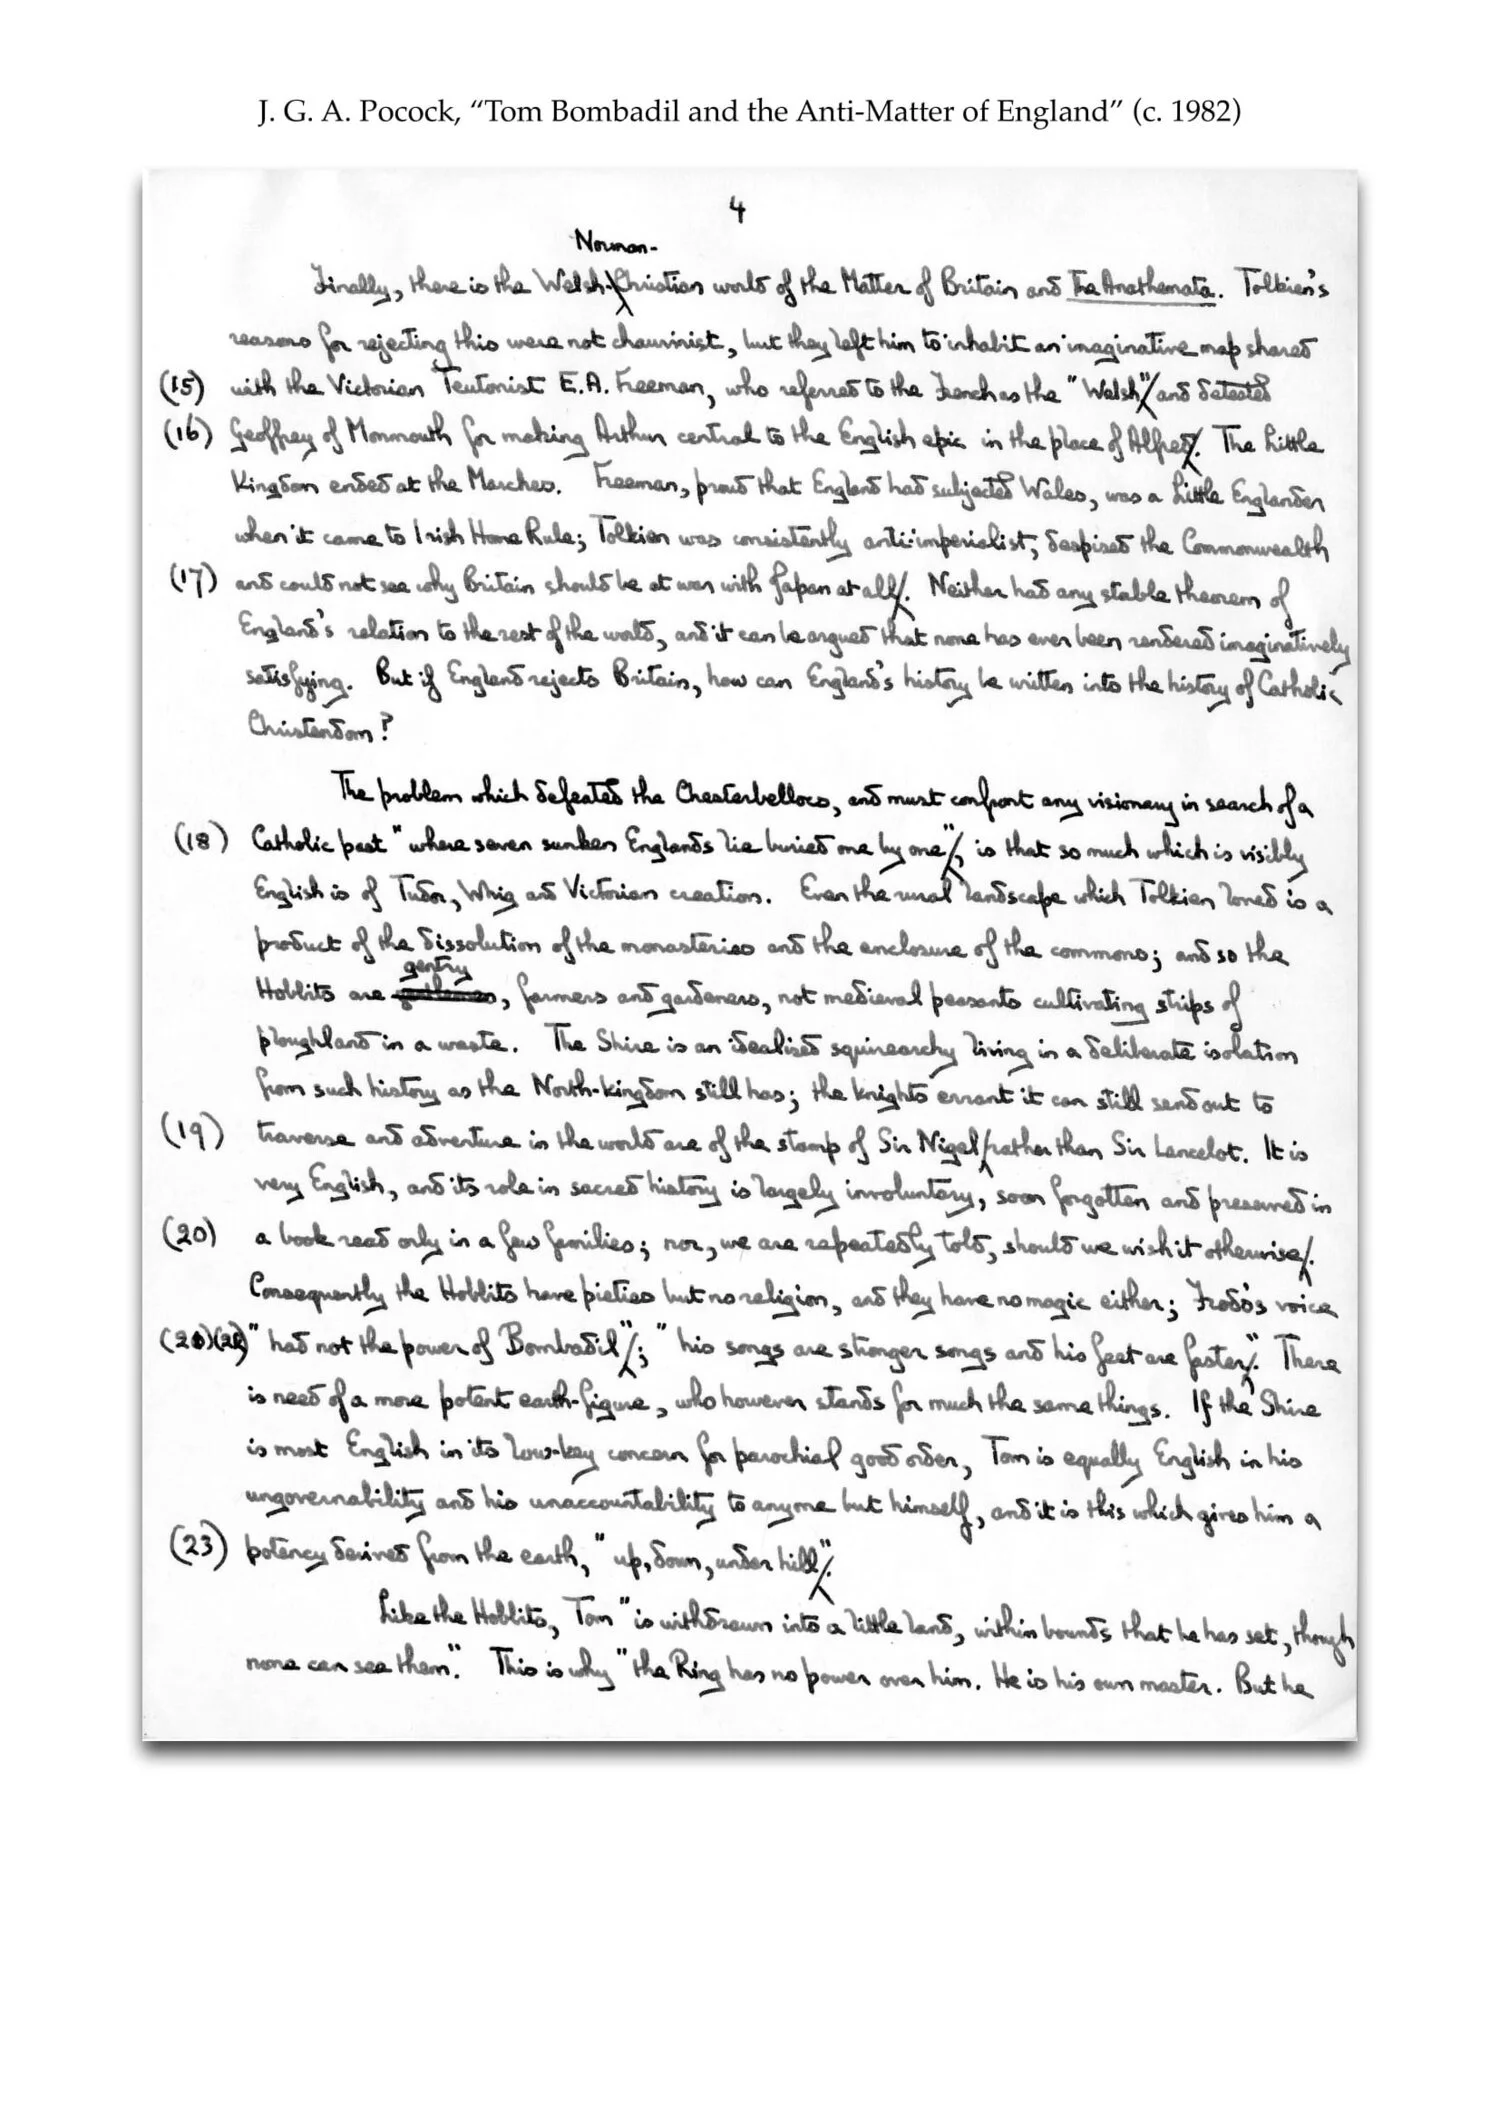 J. G. A. Pocock, “Tom Bombadil and the Anti-Matter of England” (c. 1982)
4
Norman-
Finally, there is the Welsh-Christian world of the Matter of Britain and The Anathemata. Tolkien's
reasons for rejecting this were not chauvinist, but they left him to inhabit an imaginative map shared
(15) with the Victorian Teutonist E.A. Freeman, who referred to the French as the "Welsh" and detested
(16) Geoffrey of Monmouth for making Arthur central to the English epic in the place of Alfred. The Little
Kingdom ended at the Marches. Freeman, proud that England had subjected Wales, was a Little Englander
when it came to Irish Home Rule; Tolkien was consistently anti-imperialist, despised the Commonwealth
(17) and could not see why Britain should be at war with Japan at all. Neither had any stable theorem of
England's relation to the rest of the world, and it can be argued that none has ever been rendered imaginatively
satisfying. But if England rejects Britain, how can England's history be written into the history of Catholic
Christendom?
The problem which defeated the Chesterbellocs, and must confront any visionary in search of a
(18) Catholic past "where seven sunken Englands lie buried one by one", is that so much which is visibly
English is of Tudor, Whig and Victorian creation. Even the rural landscape which Tolkien loved is a
product of the dissolution of the monasteries and the enclosure of the commons; and so the
gentry
Hobbits are gentlemen, farmers and gardeners, not medieval peasants cultivating strips of
ploughland in a waste. The Shire is an idealised squirearchy living in a deliberate isolation
from such history as the North-kingdom still has; the knights errant it can still send out to
(19) traverse and adventure in the world are of the stamp of Sir Nigel rather than Sir Lancelot. It is
very English, and its role in sacred history is largely involuntary, soon forgotten and preserved in
(20) a book read only in a few families; nor, we are repeatedly told, should we wish it otherwise.
Consequently the Hobbits have pieties but no religion, and they have no magic either; Frodo's voice
(21)(22) "had not the power of Bombadil"; "his songs are stronger songs and his feet are faster". There
is need of a more potent earth-figure, who however stands for much the same things. If the Shire
is most English in its low-key concern for parochial good order, Tom is equally English in his
ungovernability and his unaccountability to anyone but himself, and it is this which gives him a
(23) potency derived from the earth, "up, down, under hill".
Like the Hobbits, Tom "is withdrawn into a little land, within bounds that he has set, though
none can see them". This is why "the Ring has no power over him. He is his own master. But he